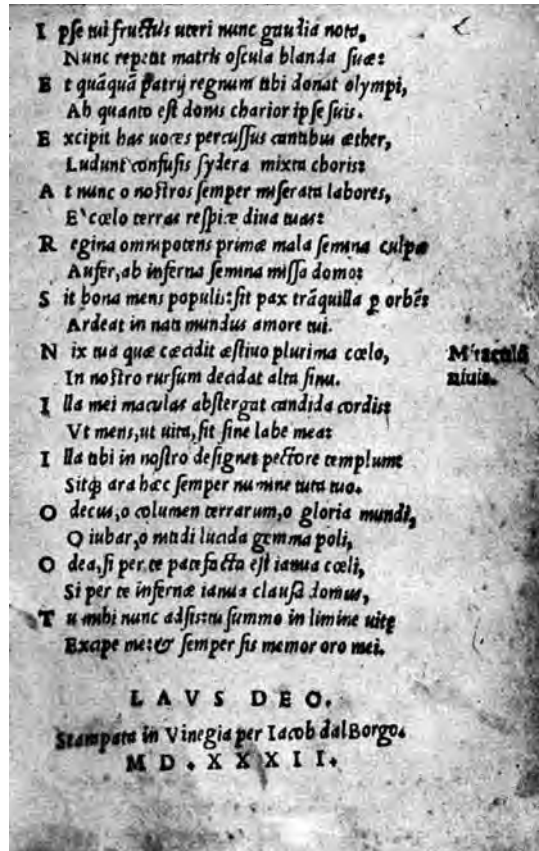 I pſe tui fructus uteri nunc gaudia noto,
Nunc repetit matris oſcula blanda ſuæ:
E t quãquã patrij regnum tibi donat olympi,
Ab quanto eſt donis charior ipſe ſuis.
E xcipit has uoces percuſſus cantibus æther,
Ludunt confuſis ſydera mixta choris:
A t nunc o noſtros ſemper miſerata labores,
E' cœlo terras reſpice diua tuas:
R egina omnipotens primæ mala ſemina culpæ
Aufer, ab inferna ſemina miſſa domo:
S it bona mens populis: ſit pax trãquilla ꝑ orbẽ:
Ardeat in nati mundus amore tui.
N ix tua quæ cæcidit æſtiuo plurima cœlo,
Miraculũ
In noſtro rurſum decidat alta ſinu.
niuis.
I lla mei maculas abſtergat candida cordis:
Vt mens, ut uita, ſit ſine labe mea:
I lla tibi in noſtro deſignet pectore templum:
Sitq; ara hæc ſemper numine tuta tuo.
O decus, o columen terrarum, o gloria mundi,
O iubar, o nitidi lucida gemma poli,
O dea, ſi per te patefacta eſt ianua cœli,
Si per te infernæ ianua clauſa domus,
T u mihi nunc adſis: tu ſummo in limine uitę
Excipe me: & ſemper ſis memor oro mei.
LAVS DEO.
Stampata in Vinegia per Iacob dal Borgo.
MD.XXXII.